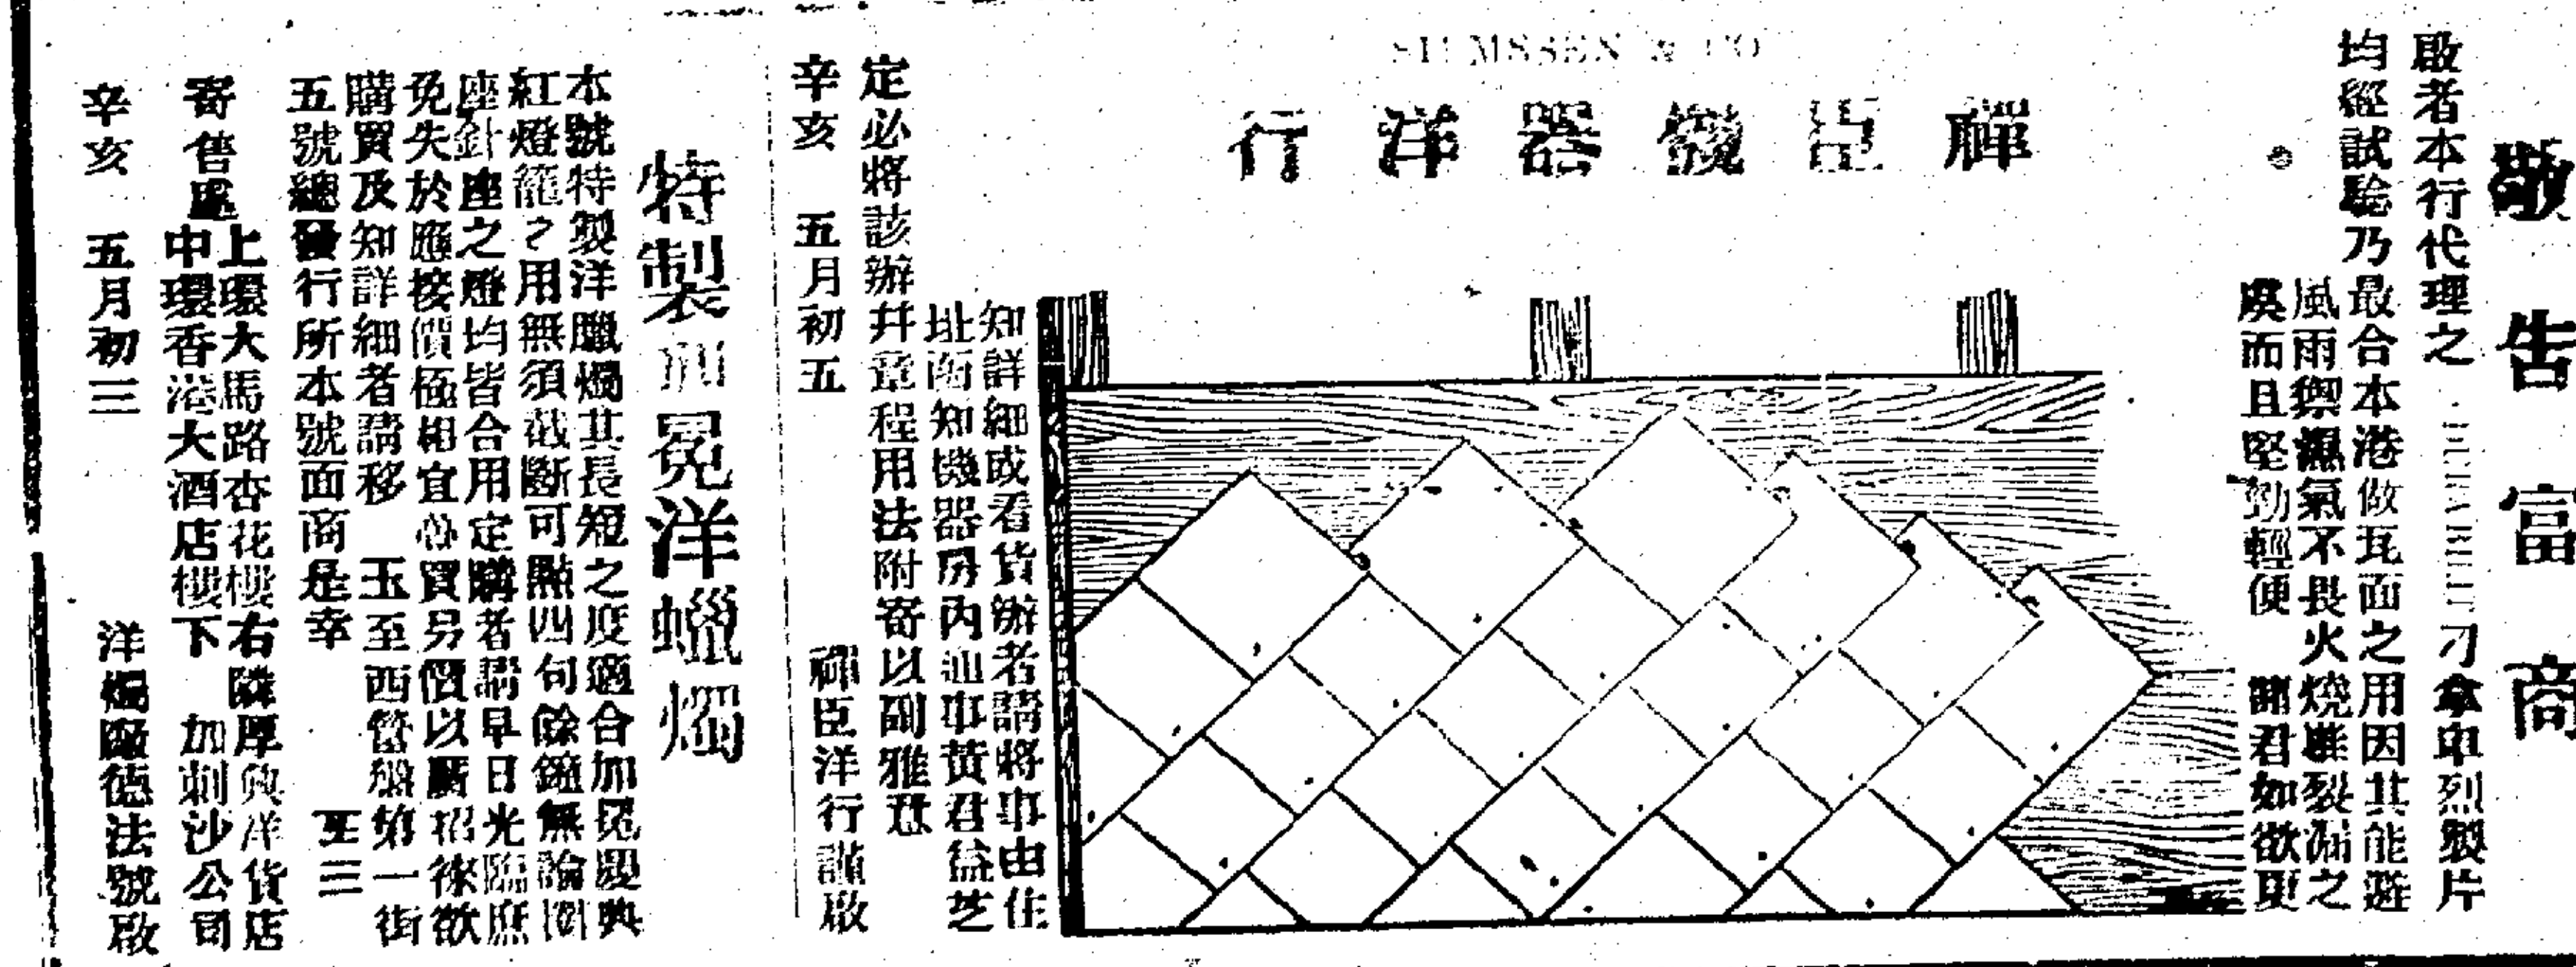 敬告富商
啟者本行代理之刁拿申烈製片
均經試驗乃最合本港做瓦面之用因其能避
風雨禦濕氣不畏火燒雖裂漏之
虞而且堅勁輕便 諸君如欲更
SIEMSSEN & CO
禪臣機器洋行
知詳細或看貨辦者請將事由住
址函知機器房內 事黃君益芝
定必將該辦并章程用法附寄以副雅意
辛亥 五月初五 禪臣洋行謹啟
特製加冕洋蠟燭
本號特製洋臘燭其長短之度適合加冕慶典
紅燈籠之用無須截斷可點四句餘鐘無論
座針座之燈均皆合用定購者請早日光臨庶
免失於應接價極相宜 買另價以廣招徠欲
購買及知詳細者請移 玉至西營盤第一街
五號總發行所本號面商是幸 至三
寄售處
上環大馬路杏花樓右隣厚興洋貨店
中環香港大酒店樓下 加刺沙公司
辛亥 五月初三 洋燭廠德法號啟